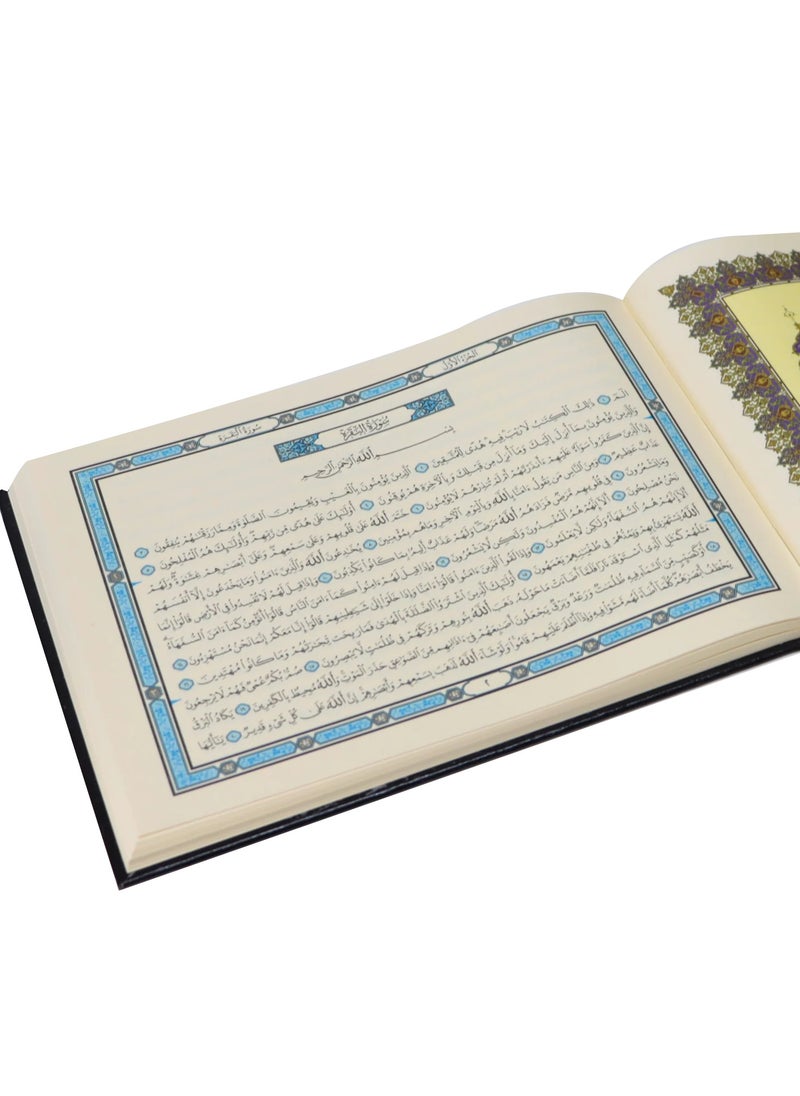 الجزء الأول
سورة البقرة
سُورَةُ البَقَرَةِ
بِسْمِ ٱللَّهِ ٱلرَّحْمَٰنِ ٱلرَّحِيمِ
الٓمٓ ١ ذَٰلِكَ ٱلْكِتَٰبُ لَا رَيْبَ فِيهِ هُدًى لِّلْمُتَّقِينَ ٢ ٱلَّذِينَ يُؤْمِنُونَ بِٱلْغَيْبِ وَيُقِيمُونَ ٱلصَّلَوٰةَ وَمِمَّا رَزَقْنَٰهُمْ يُنفِقُونَ ٣
وَٱلَّذِينَ يُؤْمِنُونَ بِمَآ أُنزِلَ إِلَيْكَ وَمَآ أُنزِلَ مِن قَبْلِكَ وَبِٱلْءَاخِرَةِ هُمْ يُوقِنُونَ ٤ أُو۟لَٰٓئِكَ عَلَىٰ هُدًى مِّن رَّبِّهِمْ وَأُو۟لَٰٓئِكَ هُمُ ٱلْمُفْلِحُونَ ٥
إِنَّ ٱلَّذِينَ كَفَرُوا۟ سَوَآءٌ عَلَيْهِمْ ءَأَنذَرْتَهُمْ أَمْ لَمْ تُنذِرْهُمْ لَا يُؤْمِنُونَ ٦ خَتَمَ ٱللَّهُ عَلَىٰ قُلُوبِهِمْ وَعَلَىٰ سَمْعِهِمْ وَعَلَىٰٓ أَبْصَٰرِهِمْ غِشَٰوَةٌ وَلَهُمْ
عَذَابٌ عَظِيمٌ ٧ وَمِنَ ٱلنَّاسِ مَن يَقُولُ ءَامَنَّا بِٱللَّهِ وَبِٱلْيَوْمِ ٱلْءَاخِرِ وَمَا هُم بِمُؤْمِنِينَ ٨ يُخَٰدِعُونَ ٱللَّهَ وَٱلَّذِينَ ءَامَنُوا۟ وَمَا يَخْدَعُونَ إِلَّآ أَنفُسَهُمْ
وَمَا يَشْعُرُونَ ٩ فِى قُلُوبِهِم مَّرَضٌ فَزَادَهُمُ ٱللَّهُ مَرَضًا وَلَهُمْ عَذَابٌ أَلِيمٌۢ بِمَا كَانُوا۟ يَكْذِبُونَ ١٠ وَإِذَا قِيلَ لَهُمْ لَا تُفْسِدُوا۟ فِى ٱلْأَرْضِ قَالُوٓا۟ إِنَّمَا
نَحْنُ مُصْلِحُونَ ١١ أَلَآ إِنَّهُمْ هُمُ ٱلْمُفْسِدُونَ وَلَٰكِن لَّا يَشْعُرُونَ ١٢ وَإِذَا قِيلَ لَهُمْ ءَامِنُوا۟ كَمَآ ءَامَنَ ٱلنَّاسُ قَالُوٓا۟ أَنُؤْمِنُ كَمَآ ءَامَنَ ٱلسُّفَهَآءُ
أَلَآ إِنَّهُمْ هُمُ ٱلسُّفَهَآءُ وَلَٰكِن لَّا يَعْلَمُونَ ١٣ وَإِذَا لَقُوا۟ ٱلَّذِينَ ءَامَنُوا۟ قَالُوٓا۟ ءَامَنَّا وَإِذَا خَلَوْا۟ إِلَىٰ شَيَٰطِينِهِمْ قَالُوٓا۟ إِنَّا مَعَكُمْ إِنَّمَا نَحْنُ مُسْتَهْزِءُونَ ١٤
ٱللَّهُ يَسْتَهْزِئُ بِهِمْ وَيَمُدُّهُمْ فِى طُغْيَٰنِهِمْ يَعْمَهُونَ ١٥ أُو۟لَٰٓئِكَ ٱلَّذِينَ ٱشْتَرَوُا۟ ٱلضَّلَٰلَةَ بِٱلْهُدَىٰ فَمَا رَبِحَت تِّجَٰرَتُهُمْ وَمَا كَانُوا۟ مُهْتَدِينَ ١٦
مَثَلُهُمْ كَمَثَلِ ٱلَّذِى ٱسْتَوْقَدَ نَارًا فَلَمَّآ أَضَآءَتْ مَا حَوْلَهُۥ ذَهَبَ ٱللَّهُ بِنُورِهِمْ وَتَرَكَهُمْ فِى ظُلُمَٰتٍ لَّا يُبْصِرُونَ ١٧ صُمٌّۢ بُكْمٌ عُمْىٌ فَهُمْ لَا يَرْجِعُونَ ١٨
أَوْ كَصَيِّبٍ مِّنَ ٱلسَّمَآءِ فِيهِ ظُلُمَٰتٌ وَرَعْدٌ وَبَرْقٌ يَجْعَلُونَ أَصَٰبِعَهُمْ فِىٓ ءَاذَانِهِم مِّنَ ٱلصَّوَٰعِقِ حَذَرَ ٱلْمَوْتِ وَٱللَّهُ مُحِيطٌۢ بِٱلْكَٰفِرِينَ ١٩ يَكَادُ ٱلْبَرْقُ
يَخْطَفُ أَبْصَٰرَهُمْ كُلَّمَآ أَضَآءَ لَهُم مَّشَوْا۟ فِيهِ وَإِذَآ أَظْلَمَ عَلَيْهِمْ قَامُوا۟ وَلَوْ شَآءَ ٱللَّهُ لَذَهَبَ بِسَمْعِهِمْ وَأَبْصَٰرِهِمْ إِنَّ ٱللَّهَ عَلَىٰ كُلِّ شَىْءٍ قَدِيرٌ ٢٠ يَٰٓأَيُّهَا
٢